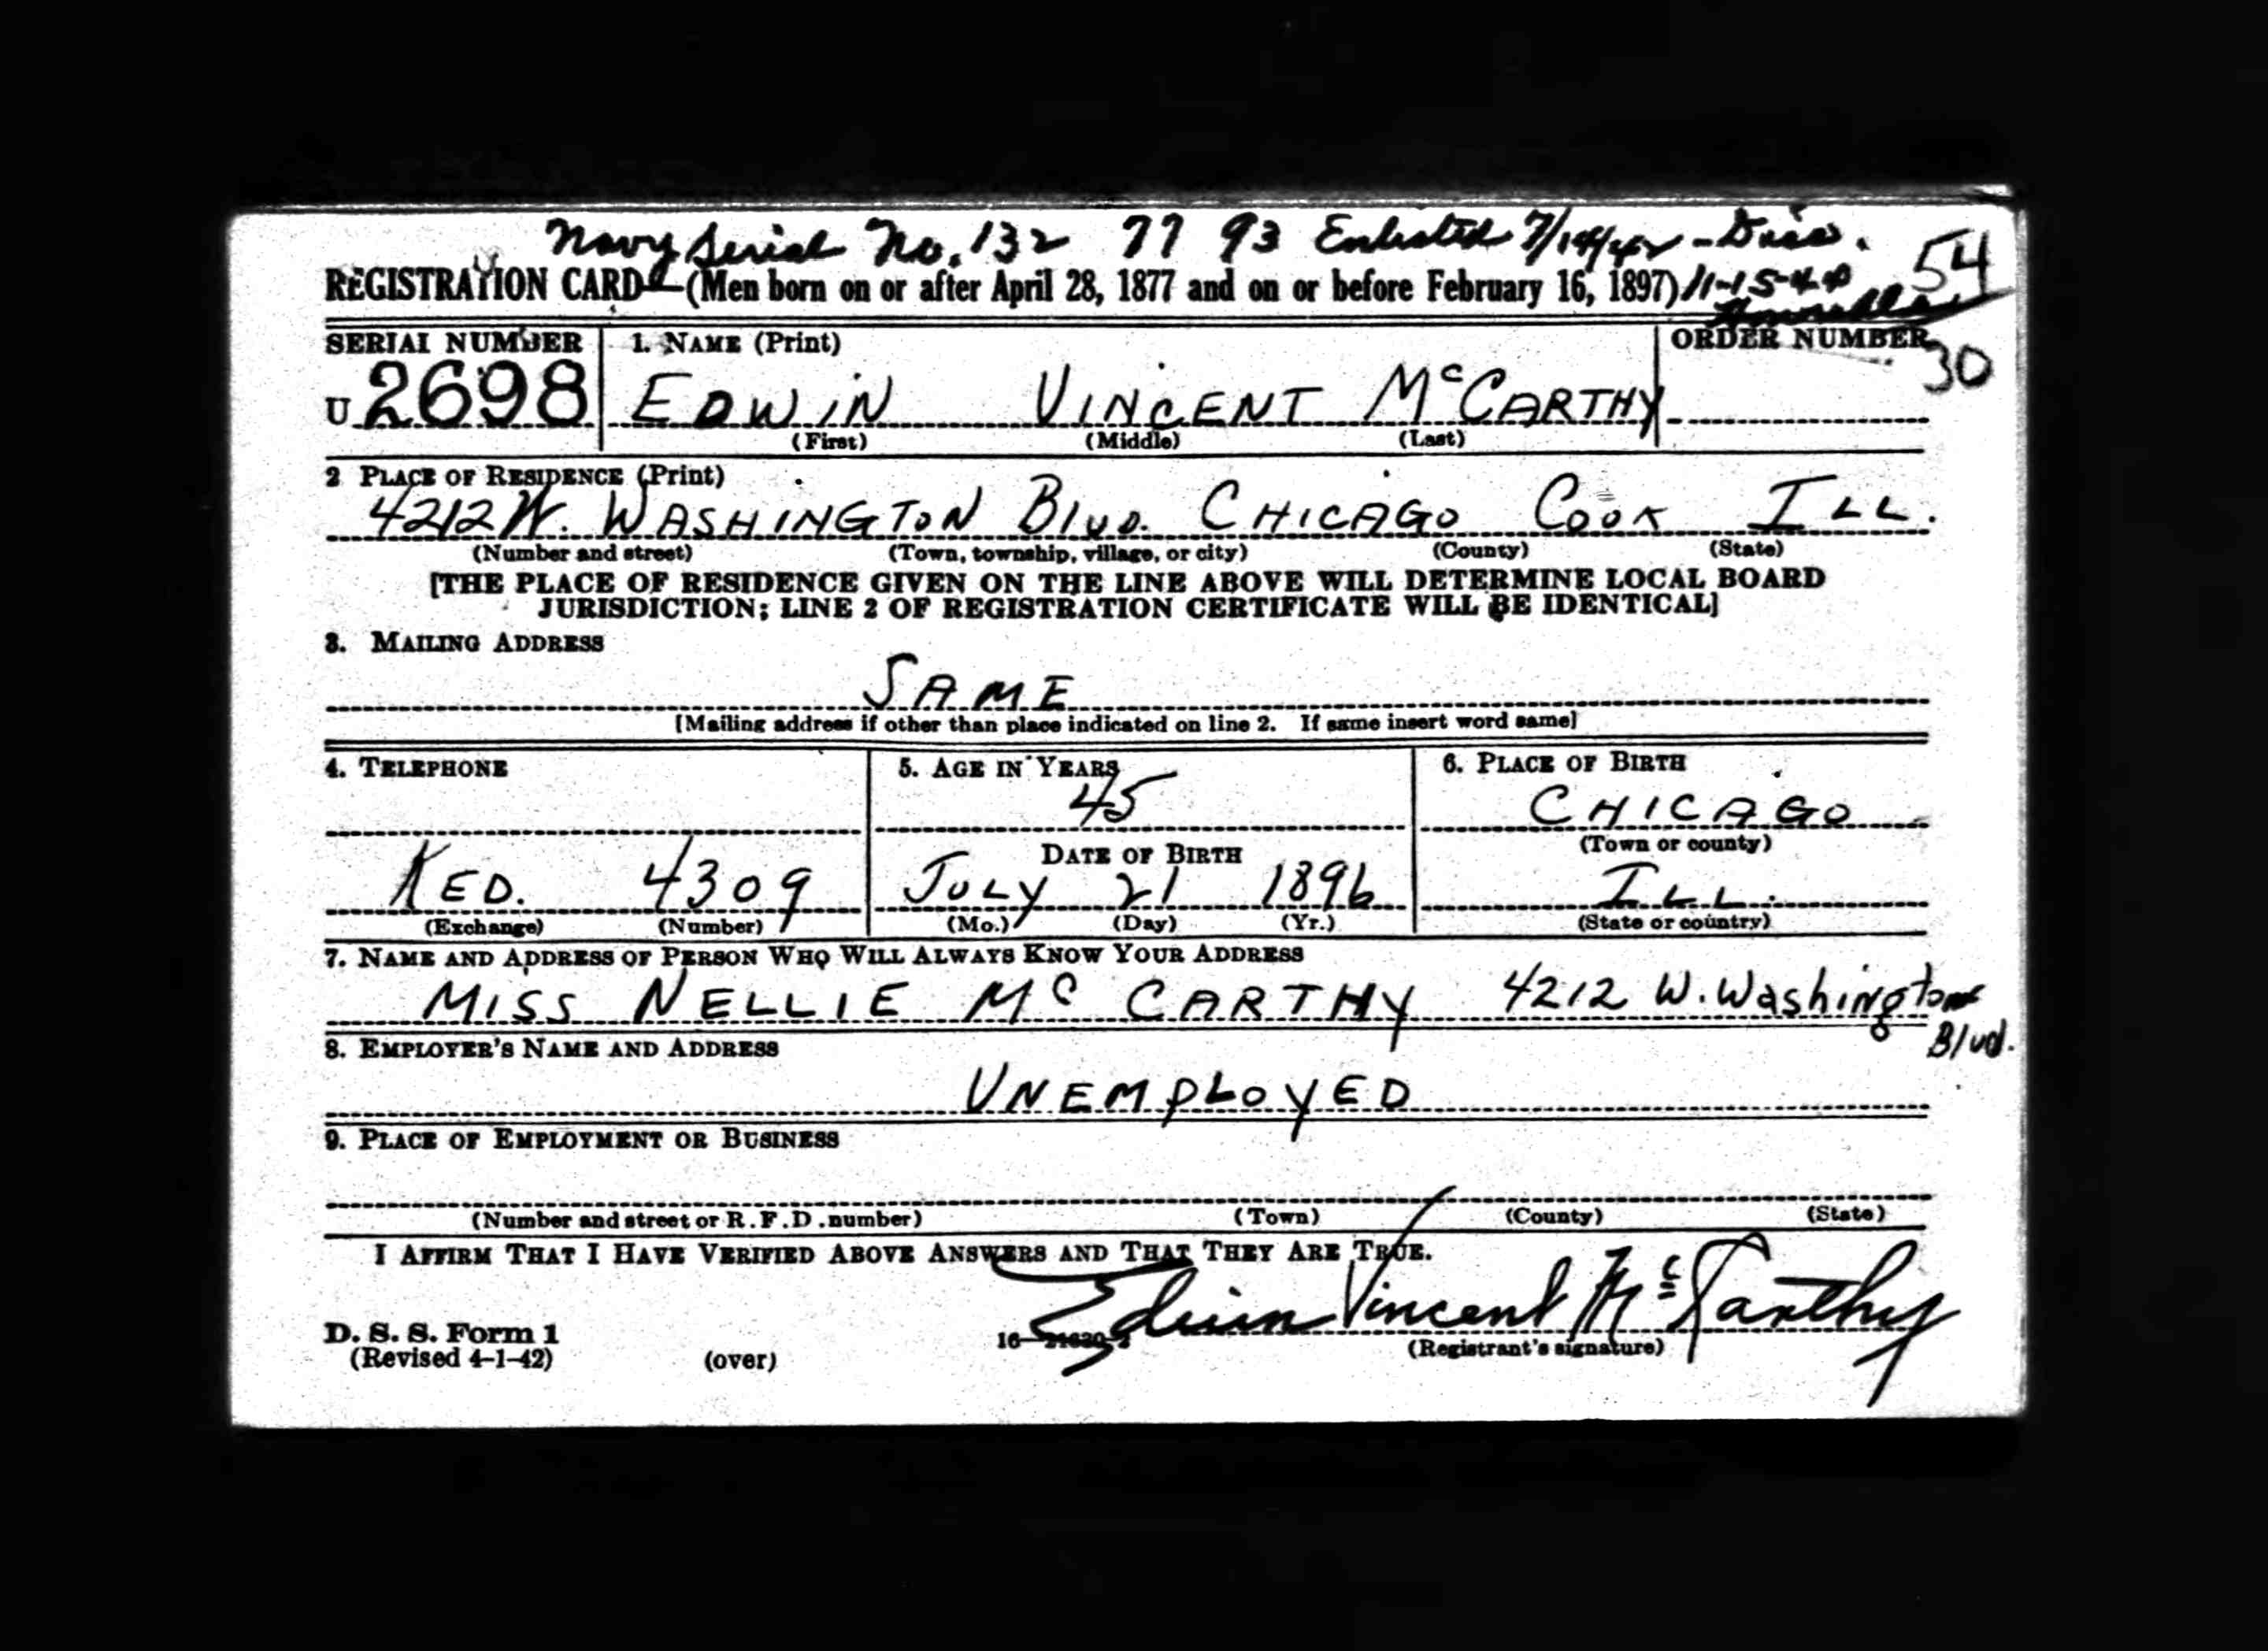 Navy Serial No. 132 77 93 Enlisted 7/14/42 - Disc.
REGISTRATION CARD—(Men born on or after April 28, 1877 and on or before February 16, 1897) 11-15-
54
SERIAL NUMBER 1. NAME (Print) ORDER NUMBER
30
U 2698 EDWIN VINCENT McCARTHY
(First) (Middle) (Last)
2 PLACE OF RESIDENCE (Print)
4212 W. WASHINGTON Blvd. CHICAGO COOK ILL.
(Number and street) (Town, township, village, or city) (County) (State)
[THE PLACE OF RESIDENCE GIVEN ON THE LINE ABOVE WILL DETERMINE LOCAL BOARD
JURISDICTION; LINE 2 OF REGISTRATION CERTIFICATE WILL BE IDENTICAL]
3. MAILING ADDRESS
SAME
[Mailing address if other than place indicated on line 2. If same insert word same]
4. TELEPHONE 5. AGE IN YEARS 6. PLACE OF BIRTH
45 CHICAGO
DATE OF BIRTH (Town or county)
KED. 4309 JULY 21 1896 ILL.
(Exchange) (Number) (Mo.) (Day) (Yr.) (State or country)
7. NAME AND ADDRESS OF PERSON WHO WILL ALWAYS KNOW YOUR ADDRESS
MISS NELLIE Mc CARTHY 4212 W. Washington
Blvd.
8. EMPLOYER'S NAME AND ADDRESS
UNEMPLOYED
9. PLACE OF EMPLOYMENT OR BUSINESS
(Number and street or R.F.D. number) (Town) (County) (State)
I AFFIRM THAT I HAVE VERIFIED ABOVE ANSWERS AND THAT THEY ARE TRUE.
Edwin Vincent McCarthy
D. S. S. Form 1 16—
(Revised 4-1-42) (over) (Registrant's signature)